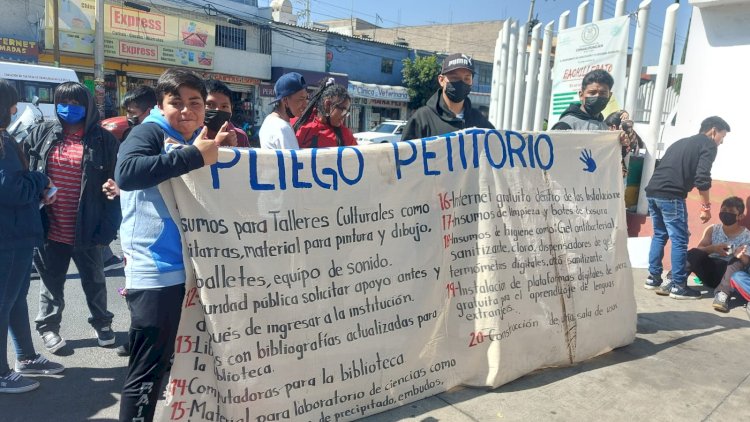 Express
Express
Clínica Veterinaria
BACHILLERATO
PUMA
PLIEGO PETITORIO
sumos para Talleres Culturales como
itarras, material para pintura y dibujo,
balletes, equipo de sonido.
12
uridad pública solicitar apoyo antes y
después de ingresar a la institución.
13 Libros con bibliografías actualizadas para
la biblioteca.
14 Computadoras para la biblioteca
15- Material para laboratorio de ciencias como
de precipitado, embudos,
16- Internet gratuito dentro de las instalaciones
17- Insumos de limpieza y botes de basura
18- Insumos de higiene como: Gel antibacterial
sanitizante, cloro, dispensadores de gel,
termómetros digitales, sanitizante
19- Instalación de plataformas digitales de manera
gratuita para el aprendizaje de lenguas
extranjeras.
20- Construcción de una sala de usos